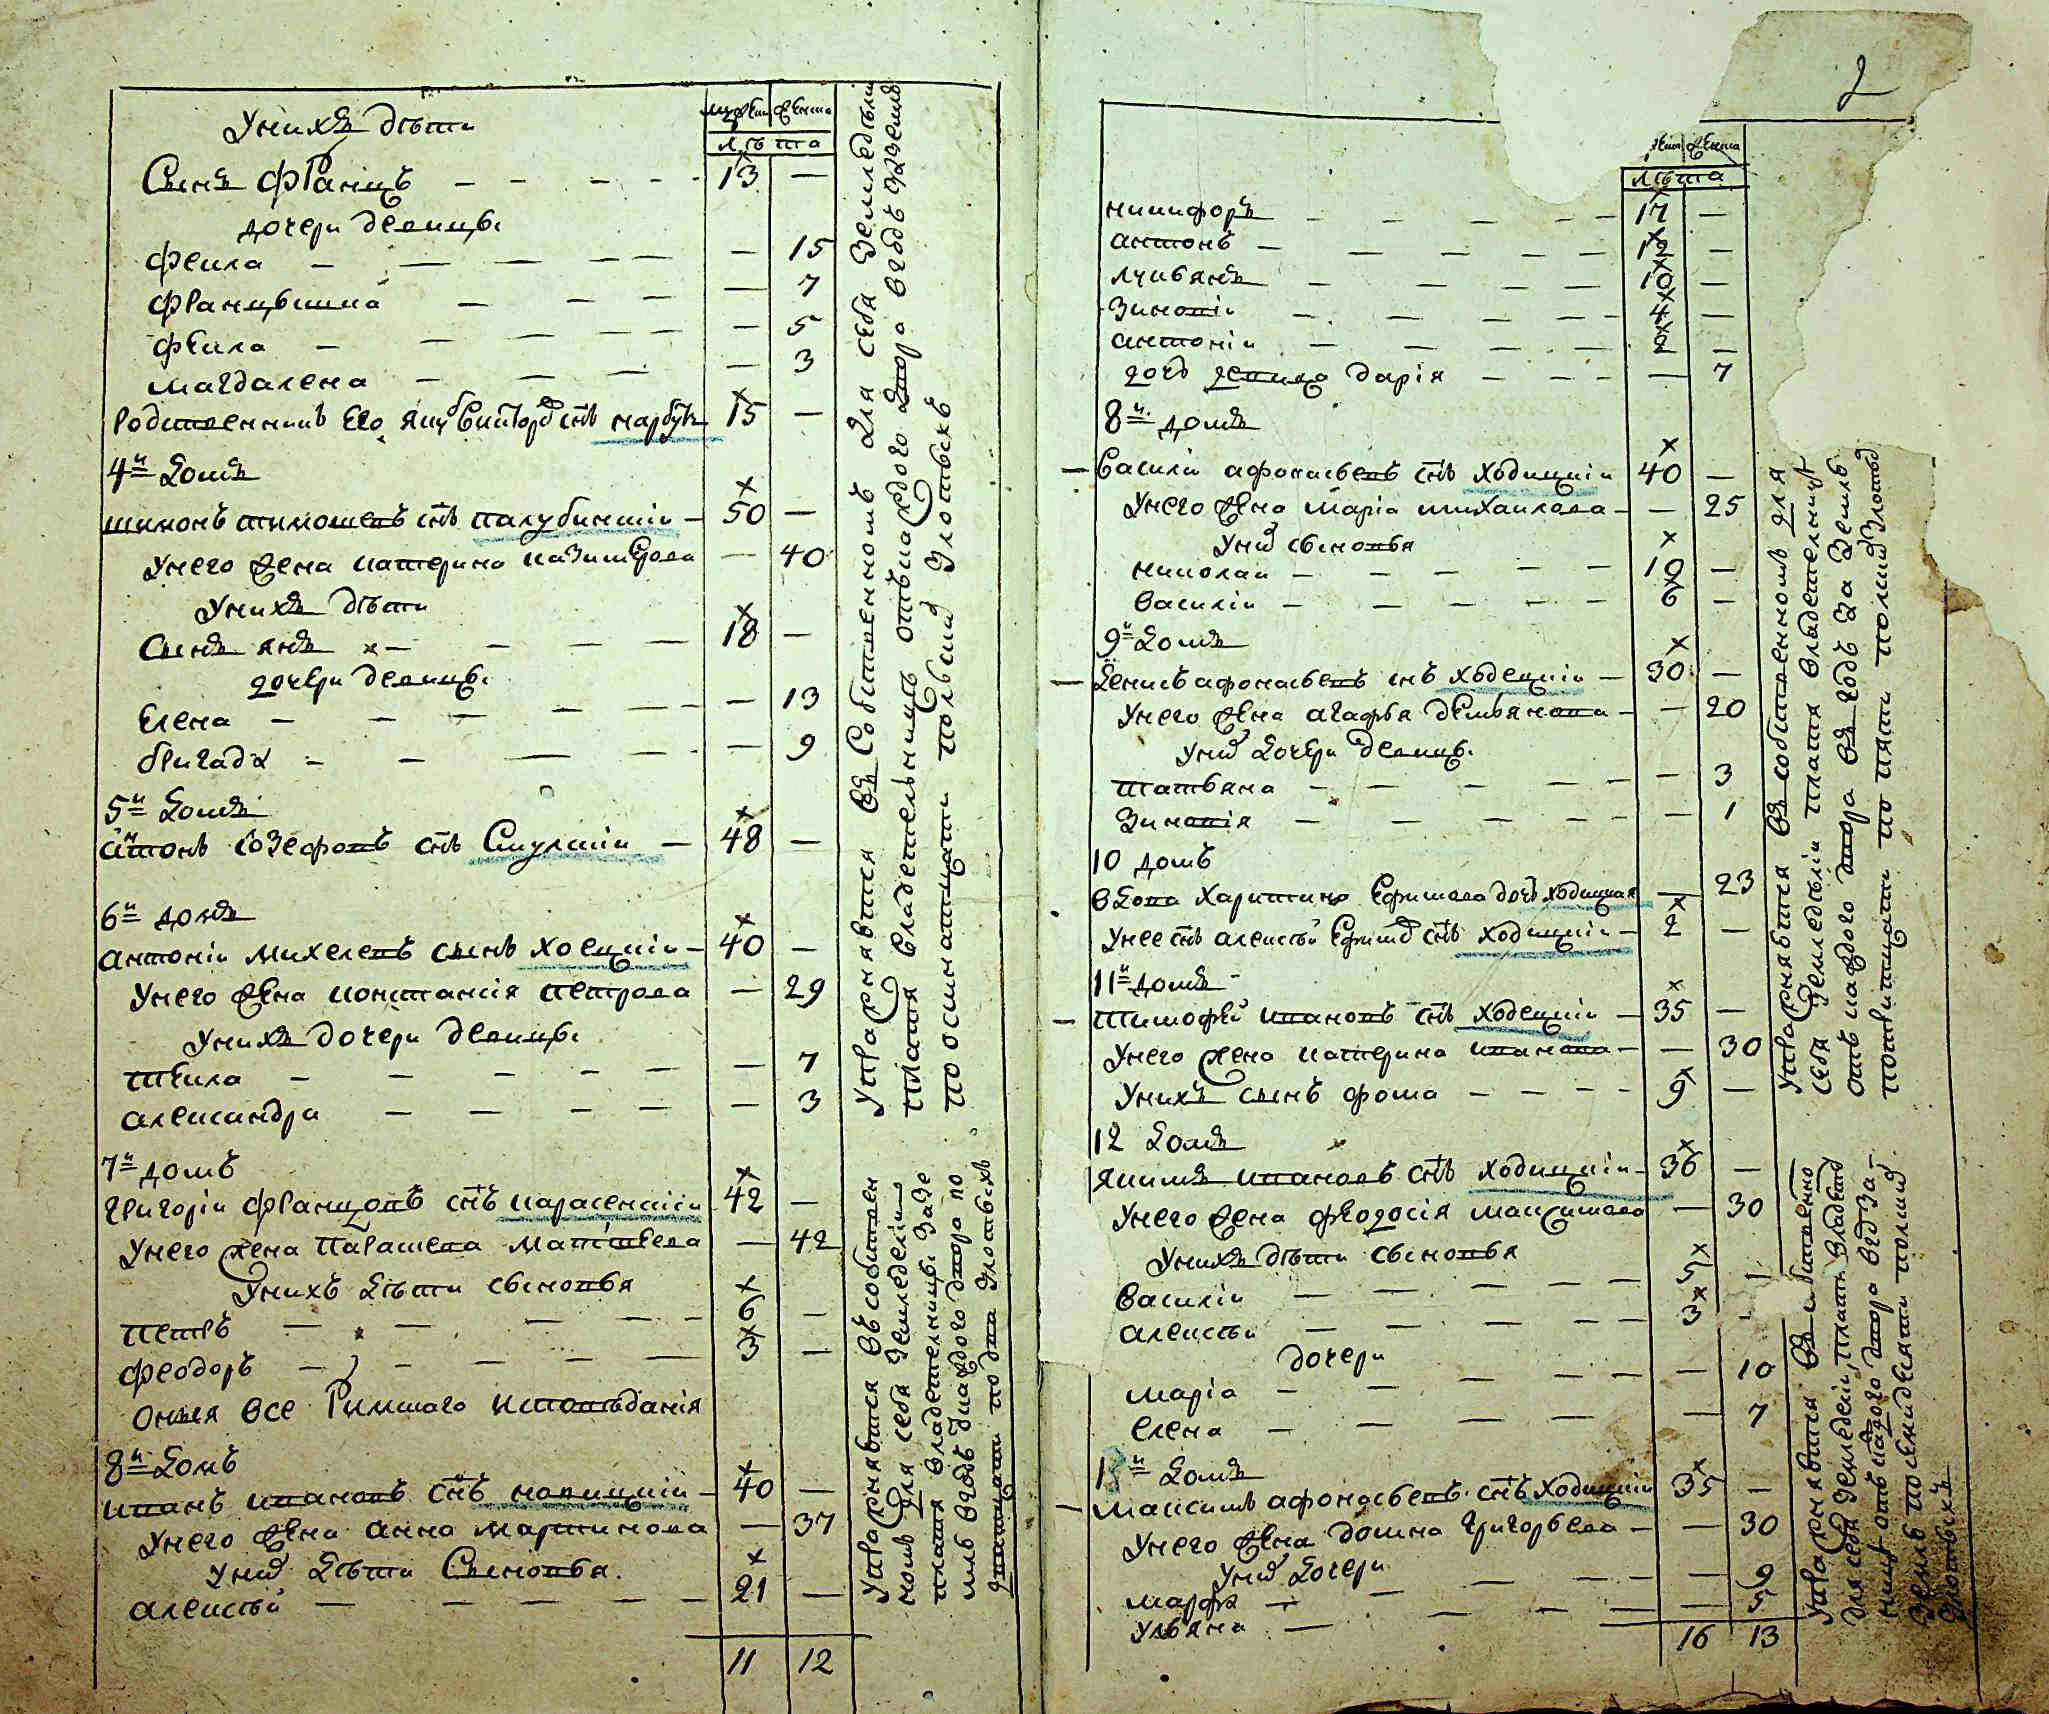 мужеск женска
лѣта
У них дѣти
Сын Францъ — 13 —
дочери девицы
Феkла — 15
Францышка — 7
Фекла — 5
Магдалена — 3
родственник его Якуб Викторов снъ Нарбут 15 —
4й домъ
Шимонъ Тимошевъ снъ Палубинскiй — 50 —
У него жена Катерина Казимерова — 40
У них дѣти
Сынъ Янъ — 18 —
дочери девицы
Елена — 13
Бригада — 9
5й домъ
Антонъ Юзефовъ снъ Скулскiи — 48 —
6й домъ
Антонiи Михелевъ сынъ Хоецкiи — 40 —
У него жена Констансiя Петрова — 29
У них дочери девицы
Текла — 7
Александра — 3
7й домъ
Григорiи Францовъ снъ Карасевскiи 42 —
У него жена Парасkева Матвеева — 42
У нихъ дѣти сыновья
Петръ — 6 —
Феодоръ — 3 —
Оныя все Римскаго исповѣданiя
8й домъ
Иванъ Ивановъ снъ Новицкiй — 40 —
У него жена Анна Мартинова — 37
У них дѣти Сыновья
Алексѣй — 21 —
11 12
Упражняются въ собственномъ для себя земледѣлiи
платя владетельницѣ отъ каждого двора в годъ за землю
по осмнатцати польских злотыхъ
Упражняются въ собствен
номъ для себя земледелiи
платя владетельницы за зе
млю в годъ с каждого двора по
тритцати по два злотыхъ
2
жена
лѣта
Никифоръ — 17 —
Антонъ — 12 —
Лукьянъ — 10 —
Зиновiи — 4 —
Антонiи — 2 —
дочь девица Дарiя — 7
8й домъ
Василiи Афонасьевъ снъ Ходицкiи 40 —
У него жена Марiя Михаилова — 25
У них сыновья
Николаи — 10 —
Василiи — 6 —
9й домъ
Денисъ Афонасьевъ снъ Ходецкiи — 30 —
У него жена Агафья Демьянова — 20
У них дочери девицы
Татьяна — 3
Зиновiя — 1
10 домъ
Вдова Харитина Ефимова дочь Ходицкая — 23
У нее снъ Алексѣй Ефимов снъ Ходицкiи — 2 —
11й домъ
Тимофей Ивановъ снъ Ходецкiи — 35 —
У него жена Катерина Иванова — 30
У нихъ сынъ Фома — 9 —
12 домъ
Якимъ Ивановъ снъ Ходицкiи — 36 —
У него жена Феодосiя Максимова — 30
У них дѣти сыновья
Василiи — 5 —
Алексѣи — 3 —
дочери
Марiа — 10
Елена — 7
13й домъ
Максимъ Афонасьевъ снъ Ходицкiи 35 —
У него жена Домна Григорьева — 30
У них дочери
Марфа — 9
Ульяна — 5
16 13
Упражняются въ собственномъ для
себя земледѣлiи платя владетельницѣ
отъ каждого двора въ годъ за землю
по тритцати по пяти полских злотых
Упражняются въ собственно
для себя земледелiи, платя владете
ницѣ отъ каждого двора в год за
землю по
злотыхъ